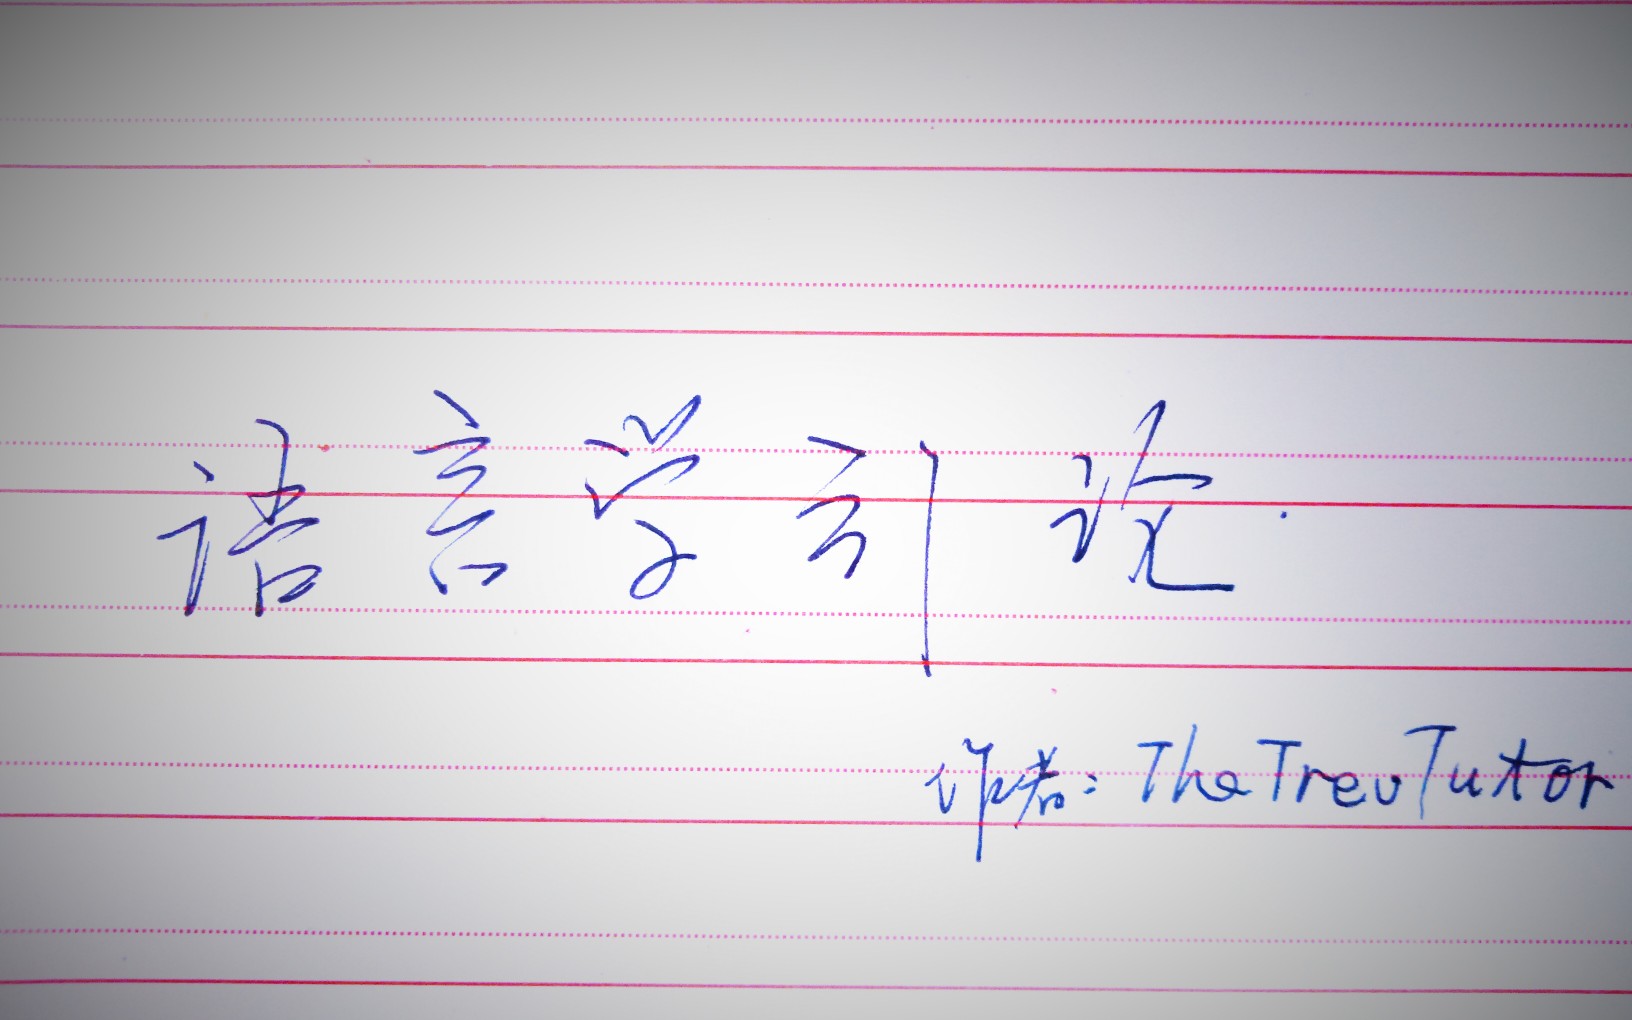 语言学引论.
译者: TheTrevTutor